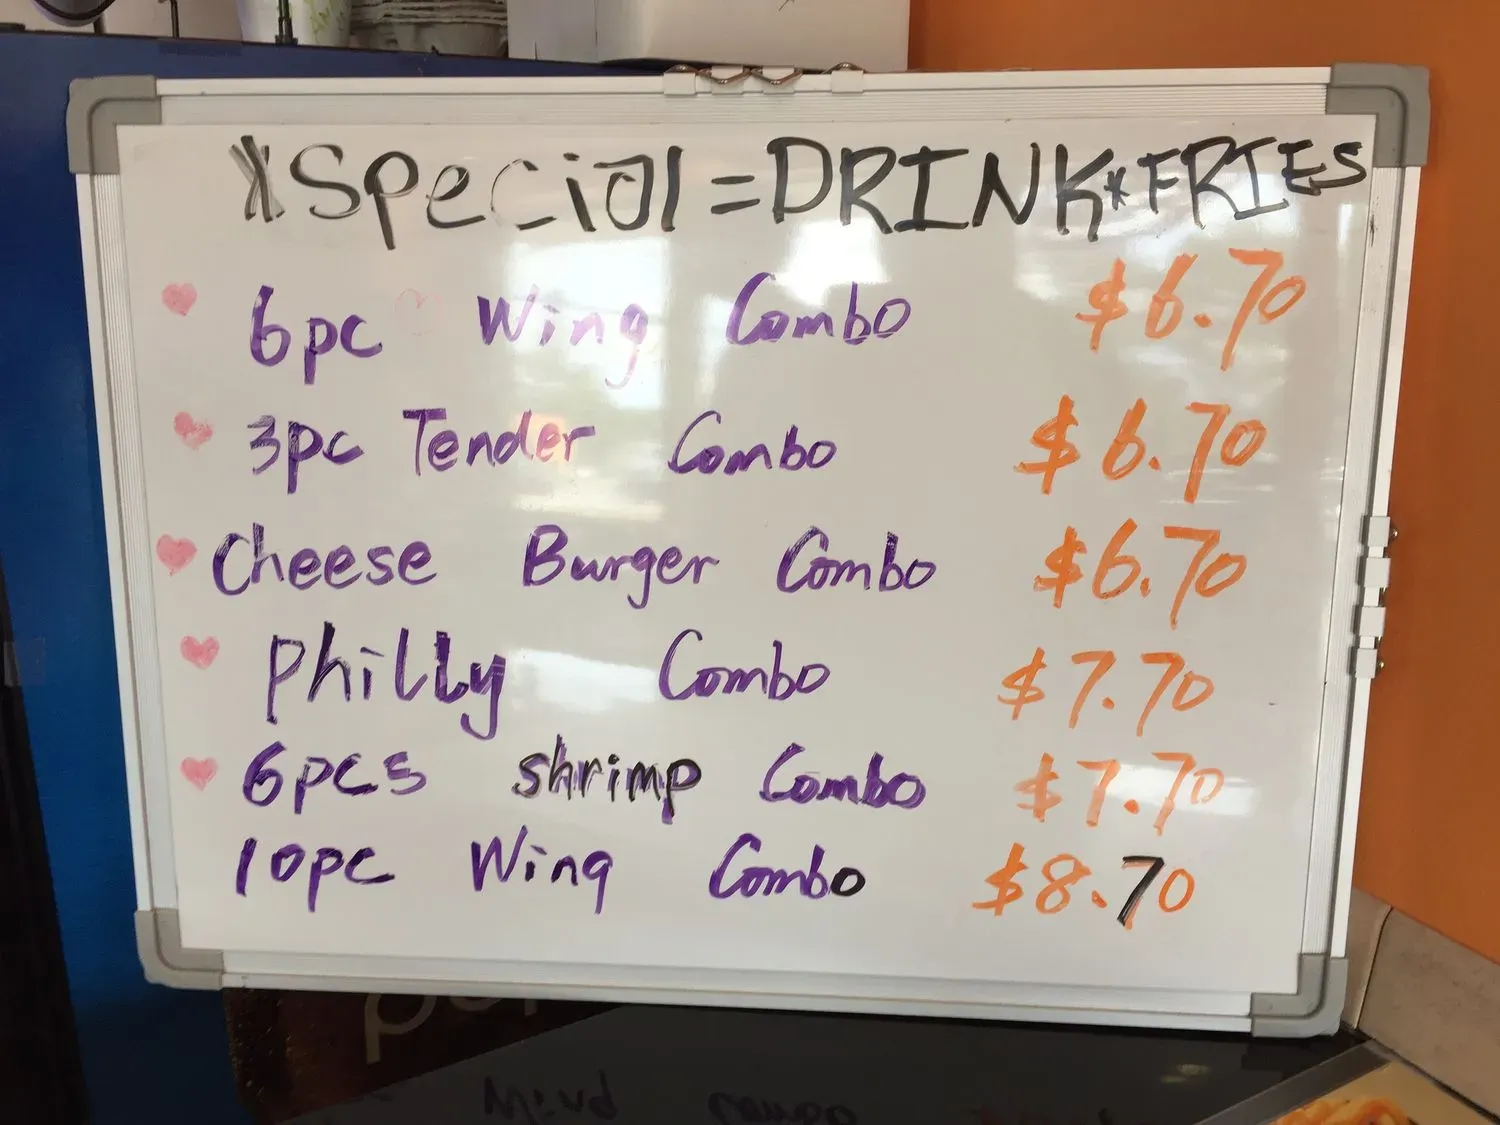 *Special = DRINK*FRIES
6pc Wing Combo $6.70
3pc Tender Combo $6.70
Cheese Burger Combo $6.70
Philly Combo $7.70
6pcs shrimp Combo $7.70
10pc Wing Combo $8.70